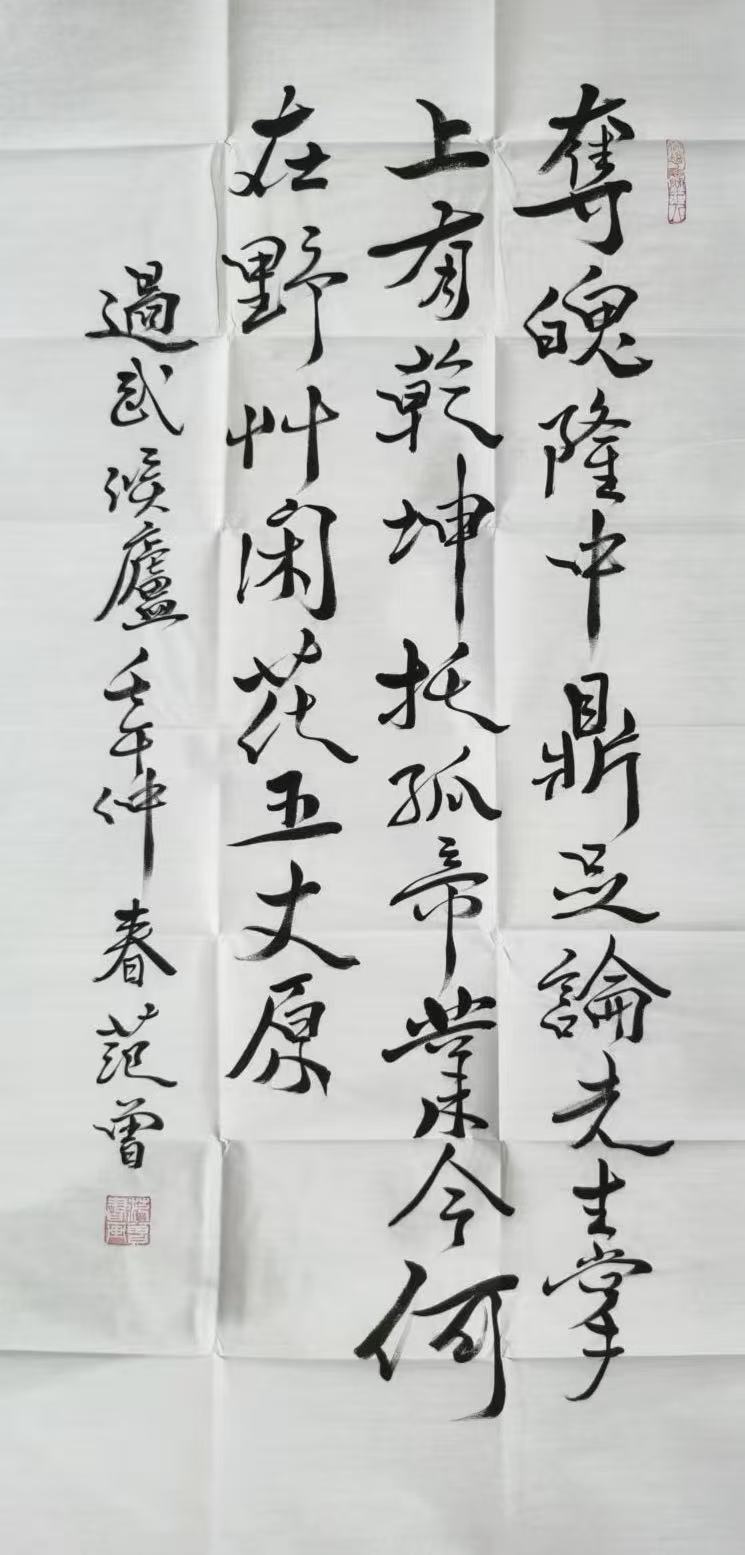 奪魄隆中鼎足論先生掌
上有乾坤托孤帝業今何
在野艸闲花五丈原
過武侯廬壬午仲春范曾